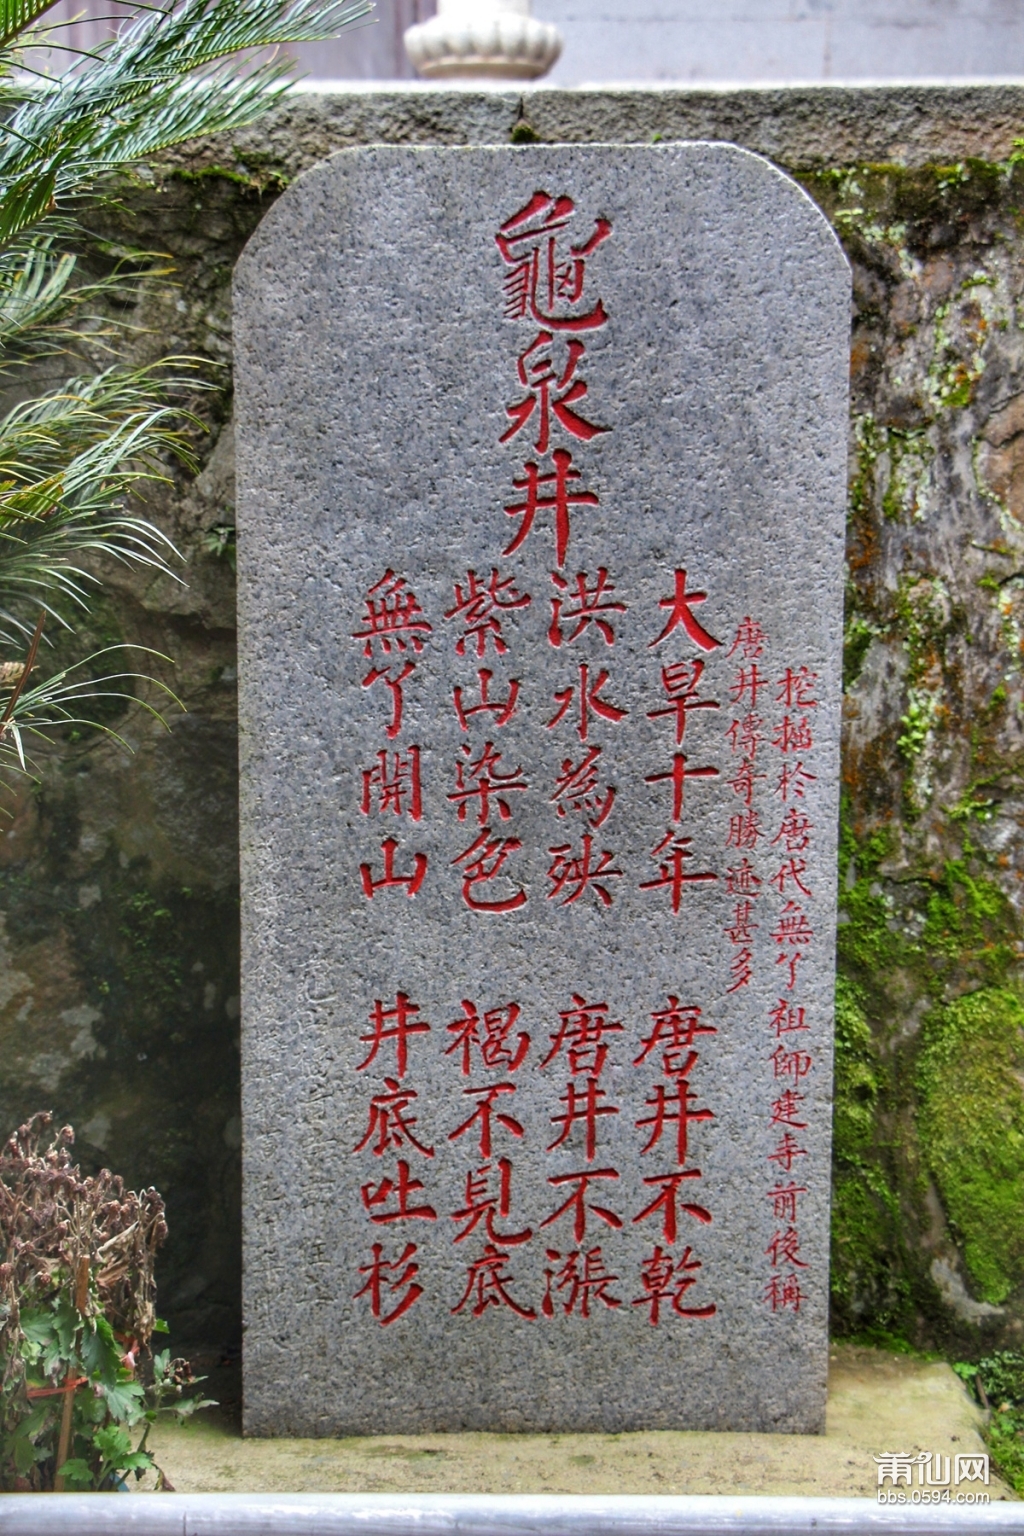 龜泉井
挖掘於唐代無了祖師建寺前後稱
唐井傳奇勝迹甚多
大旱十年 唐井不乾
洪水為殃 唐井不漲
紫山染色 褐不見底
無了開山 井底吐杉
莆仙网
bbs.0594.com